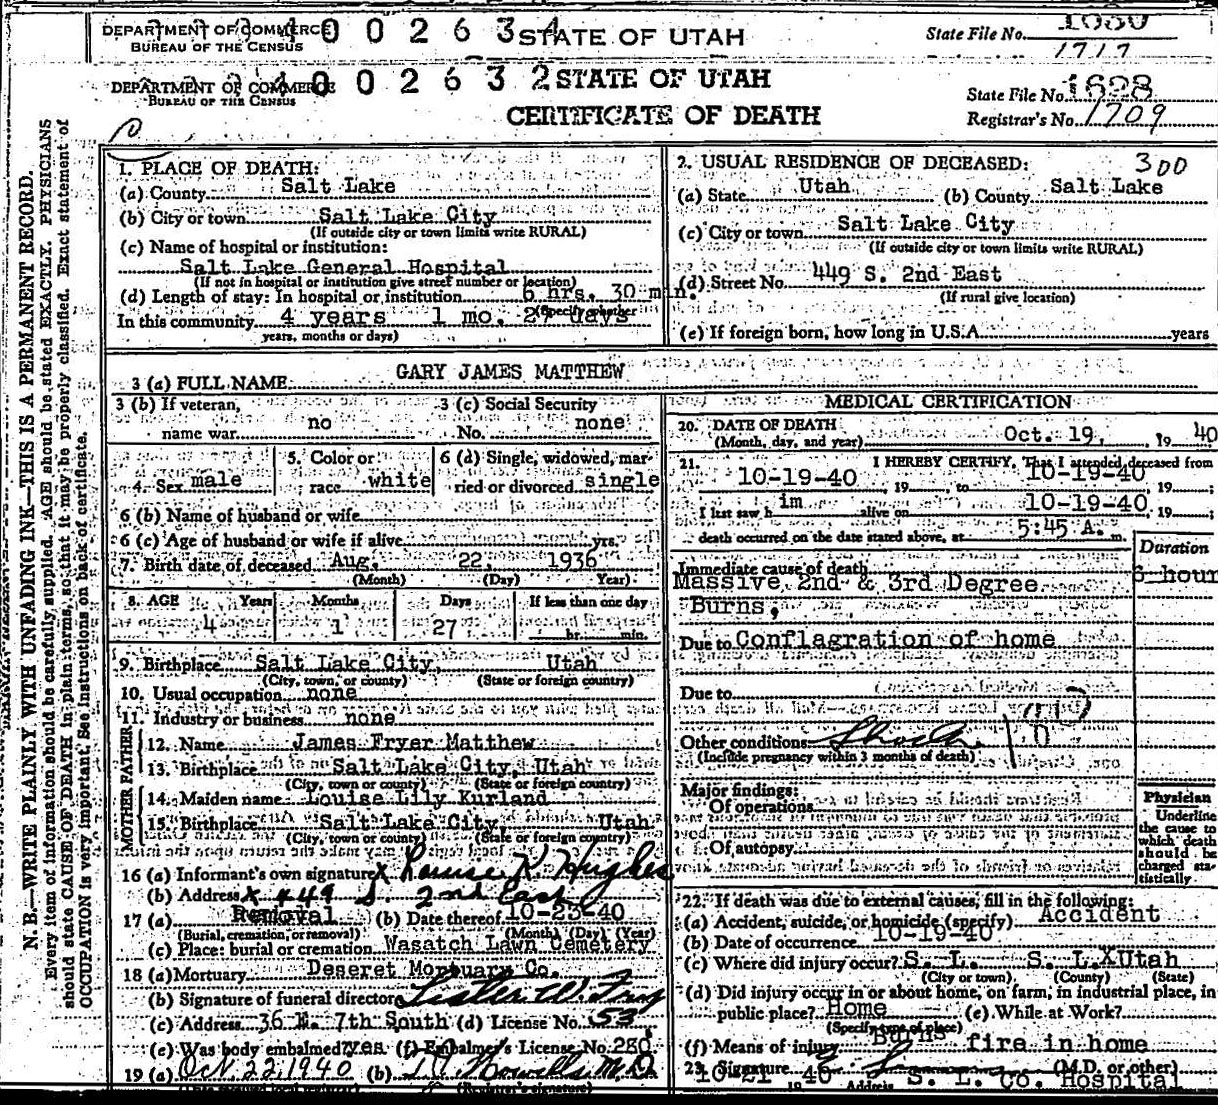 DEPARTMENT OF COMMERCE
BUREAU OF THE CENSUS
400263
STATE OF UTAH
State File No.
1717
DEPARTMENT OF COMMERCE
BUREAU OF THE CENSUS
4002632
STATE OF UTAH
CERTIFICATE OF DEATH
State File No. 1628
Registrar's No. 1709
N. B.—WRITE PLAINLY WITH UNFADING INK—THIS IS A PERMANENT RECORD.
Every item of information should be carefully supplied. AGE should be stated EXACTLY. PHYSICIANS
should state CAUSE OF DEATH in plain terms, so that it may be properly classified. Exact statement of
OCCUPATION is very important. See instructions on back of certificate.
1. PLACE OF DEATH:
(a) County Salt Lake
(b) City or town Salt Lake City
(If outside city or town limits write RURAL)
(c) Name of hospital or institution:
Salt Lake General Hospital
(If not in hospital or institution give street number or location)
(d) Length of stay: In hospital or institution 6 hrs. 30 min.
(Specify whether
In this community 4 years 1 mo. 27 days
years, months or days)
2. USUAL RESIDENCE OF DECEASED: 300
(a) State Utah (b) County Salt Lake
(c) City or town Salt Lake City
(If outside city or town limits write RURAL)
(d) Street No. 449 S. 2nd East
(If rural give location)
(e) If foreign born, how long in U.S.A. years
3 (a) FULL NAME GARY JAMES MATTHEW
3 (b) If veteran, name war no
3 (c) Social Security No. none
4. Sex male
5. Color or race white
6 (d) Single, widowed, married or divorced single
6 (b) Name of husband or wife
6 (c) Age of husband or wife if alive yrs.
7. Birth date of deceased Aug. 22, 1936
(Month) (Day) (Year)
8. AGE Years Months Days If less than one day
4 1 27 hr. min.
9. Birthplace Salt Lake City, Utah
(City, town, or county) (State or foreign country)
10. Usual occupation none
11. Industry or business none
FATHER
12. Name James Fryer Matthew
13. Birthplace Salt Lake City, Utah
(City, town or county) (State or foreign country)
MOTHER
14. Maiden name Louise Lily Kurland
15. Birthplace Salt Lake City, Utah
(City, town or county) (State or foreign country)
16 (a) Informant's own signature X Louise K. Hughes
(b) Address X 449 S. 2nd East
17 (a) Removal (b) Date thereof 10-23-40
(Burial, cremation, or removal) (Month) (Day) (Year)
(c) Place: burial or cremation Wasatch Lawn Cemetery
18 (a) Mortuary Deseret Mortuary Co.
(b) Signature of funeral director
(c) Address 36 E. 7th South (d) License No. 53
(e) Was body embalmed? yes (f) Embalmer's License No. 280
19 (a) Oct. 22, 1940 (b) M.D.
(Registrar's signature)
MEDICAL CERTIFICATION
20. DATE OF DEATH
(Month, day, and year) Oct. 19, 19 40
21. I HEREBY CERTIFY, That I attended deceased from
10-19-40, 19 , to 10-19-40, 19 ;
I last saw him alive on 10-19-40, 19 ;
death occurred on the date stated above, at 5:45 A. m.
Duration
Immediate cause of death
Massive 2nd & 3rd Degree
Burns,
hour
Due to Conflagration of home
Due to
Other conditions Shock
(Include pregnancy within 3 months of death)
Major findings:
Of operations
Of autopsy
Physician
Underline
the cause to
which death
should be
charged sta-
tistically.
22. If death was due to external causes, fill in the following:
(a) Accident, suicide, or homicide (specify) Accident
(b) Date of occurrence 10-19-40
(c) Where did injury occur? S. L. S. L.X Utah
(City or town) (County) (State)
(d) Did injury occur in or about home, on farm, in industrial place, in
public place? Home (e) While at Work?
(Specify type of place)
(f) Means of injury Burns fire in home
23. Signature (M.D. or other)
10-21 19 40 Address S. L. Co. Hospital